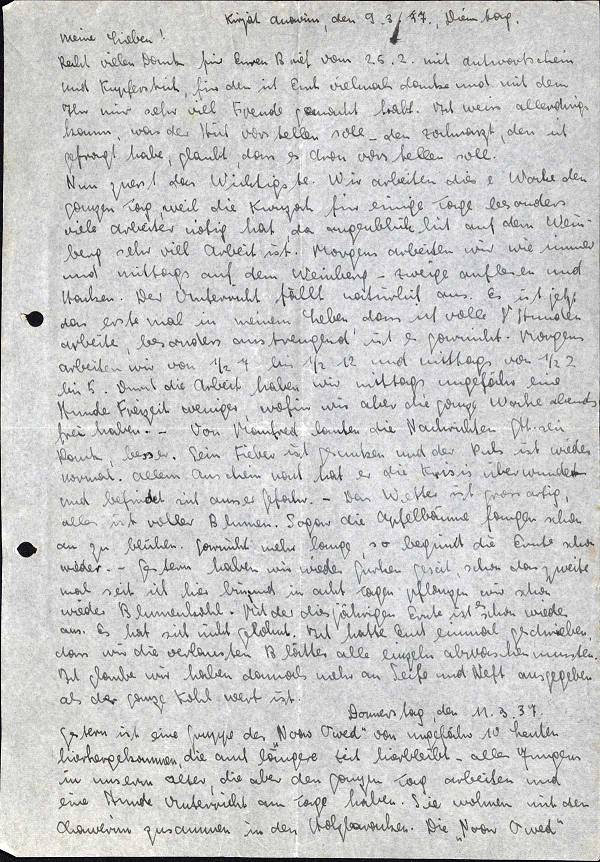 Kirjat Anavim, den 9.3.37., Dienstag.
Meine Lieben!
Recht vielen Dank für Euren Brief vom 26.2. mit Antwortschein
und Kupferstich, für den ich Euch vielmals danke und mit dem
Ihr mir sehr viel Freude gemacht habt. Ich weiss allerdings
kaum, was der Stich vorstellen soll - den Zahnarzt, den ich
gefragt habe, glaubt dass es vorstellen soll.
Nun zuerst das Wichtigste. Wir arbeiten diese Woche den
ganzen Tag, weil die Kwuzah für einige Tage besonders
viele Arbeiter nötig hat da augenblicklich auf dem Wein-
berg sehr viel Arbeit ist. Morgens arbeiten wir wie immer
und mittags auf dem Weinberg - Zweige auflesen und
Hacken. Der Unterricht fällt natürlich aus. Es ist jetzt
das erste mal in meinem Leben dass ich volle 8 Stunden
arbeite, besonders anstrengend ist es garnicht. Morgens
arbeiten wir von 1/2 7 bis 1/2 12 und mittags von 1/2 2
bis 5. Durch die Arbeit haben wir mittags ungefähr eine
Stunde Freizeit weniger, wofür wir aber die ganze Woche abends
frei haben. - Von Manfred lauten die Nachrichten Gtt. sei
Dank, besser. Sein Fieber ist gesunken und der Puls ist wieder
normal. Allem Anschein nach hat er die Krisis überwunden
und befindet sich ausser Gefahr. - Das Wetter ist grossartig,
alles ist voller Blumen. Sogar die Apfelbäume fangen schon
an zu blühen. Garnicht mehr lange, so beginnt die Ernte schon
wieder. - Gestern haben wir wieder Gurken gesät, schon das zweite
mal seit ich hier bin und in acht Tagen pflanzen wir schon
wieder Blumenkohl. Mit der diesjährigen Ernte ist es schon wieder
aus. Es hat sich nicht gelohnt. Ich hatte Euch einmal geschrieben,
dass wir die verlausten Blätter alle einzeln abwaschen mussten.
Ich glaube wir haben damals mehr an Seife und Neft ausgegeben
als der ganze Kohl wert ist.
Donnerstag, den 11.3.37.
Gestern ist eine Gruppe des "Noar Owed" von ungefähr 10 Leuten
hierhergekommen, die auf längere Zeit hierbleibt - alles Jungens
in unserm Alter, die aber den ganzen Tag arbeiten und
eine Stunde Unterricht am Tage haben. Sie wohnen mit den
Chawerim zusammen in den Holzbaracken. Die "Noar Owed"